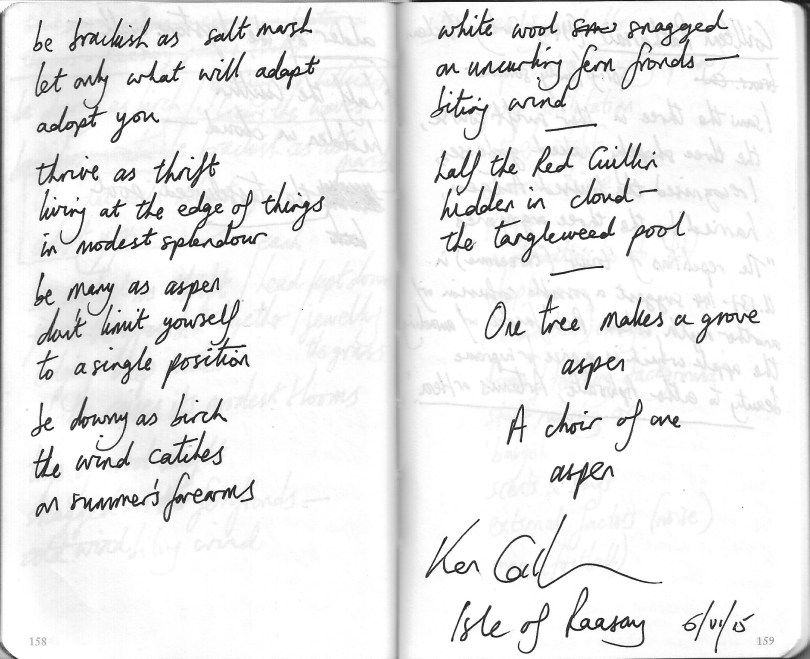 be brackish as salt marsh
let only what will adapt
adopt you
thrive as thrift
living at the edge of things
in modest splendour
be many as aspen
don't limit yourself
to a single position
be downy as birch
the wind catches
on summer's forearms
158
white wool snagged
on uncurling fern fronds —
biting wind
half the Red Cuillin
hidden in cloud —
the tangleweed pool
One tree makes a grove
aspen
A choir of one
aspen
Ken
Isle of Raasay 5/VI/15
159